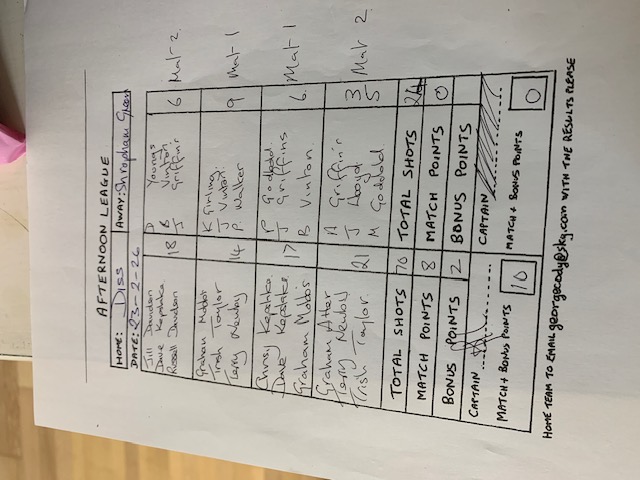 AFTERNOON LEAGUE
HOME: Diss AWAY: Shropham Green
DATE: 23-2-26
Jill Davidson D Youngs
Dave Kapelka 18 B Vinton 6 Mat 2
Russell Davidson J Griffin
Graham Mobbs K Girling
Trish Taylor 14 J Vinton 9 Mat 1
Terry Newby P. Walker
Chrissy P Goddard
Dave 17 J Griffins 6 Mat 1
Graham Mobbs B Vinton
Graham A Griffin 3
Terry 21 J Lloyd 5 Mat 2
Trish Taylor M Goddard
TOTAL SHOTS 70 TOTAL SHOTS
MATCH POINTS 8 MATCH POINTS 0
BONUS POINTS 2 BONUS POINTS
CAPTAIN CAPTAIN
MATCH + BONUS POINTS 10 MATCH + BONUS POINTS 0
HOME TEAM TO EMAIL georgecody@sky.com WITH THE RESULTS PLEASE